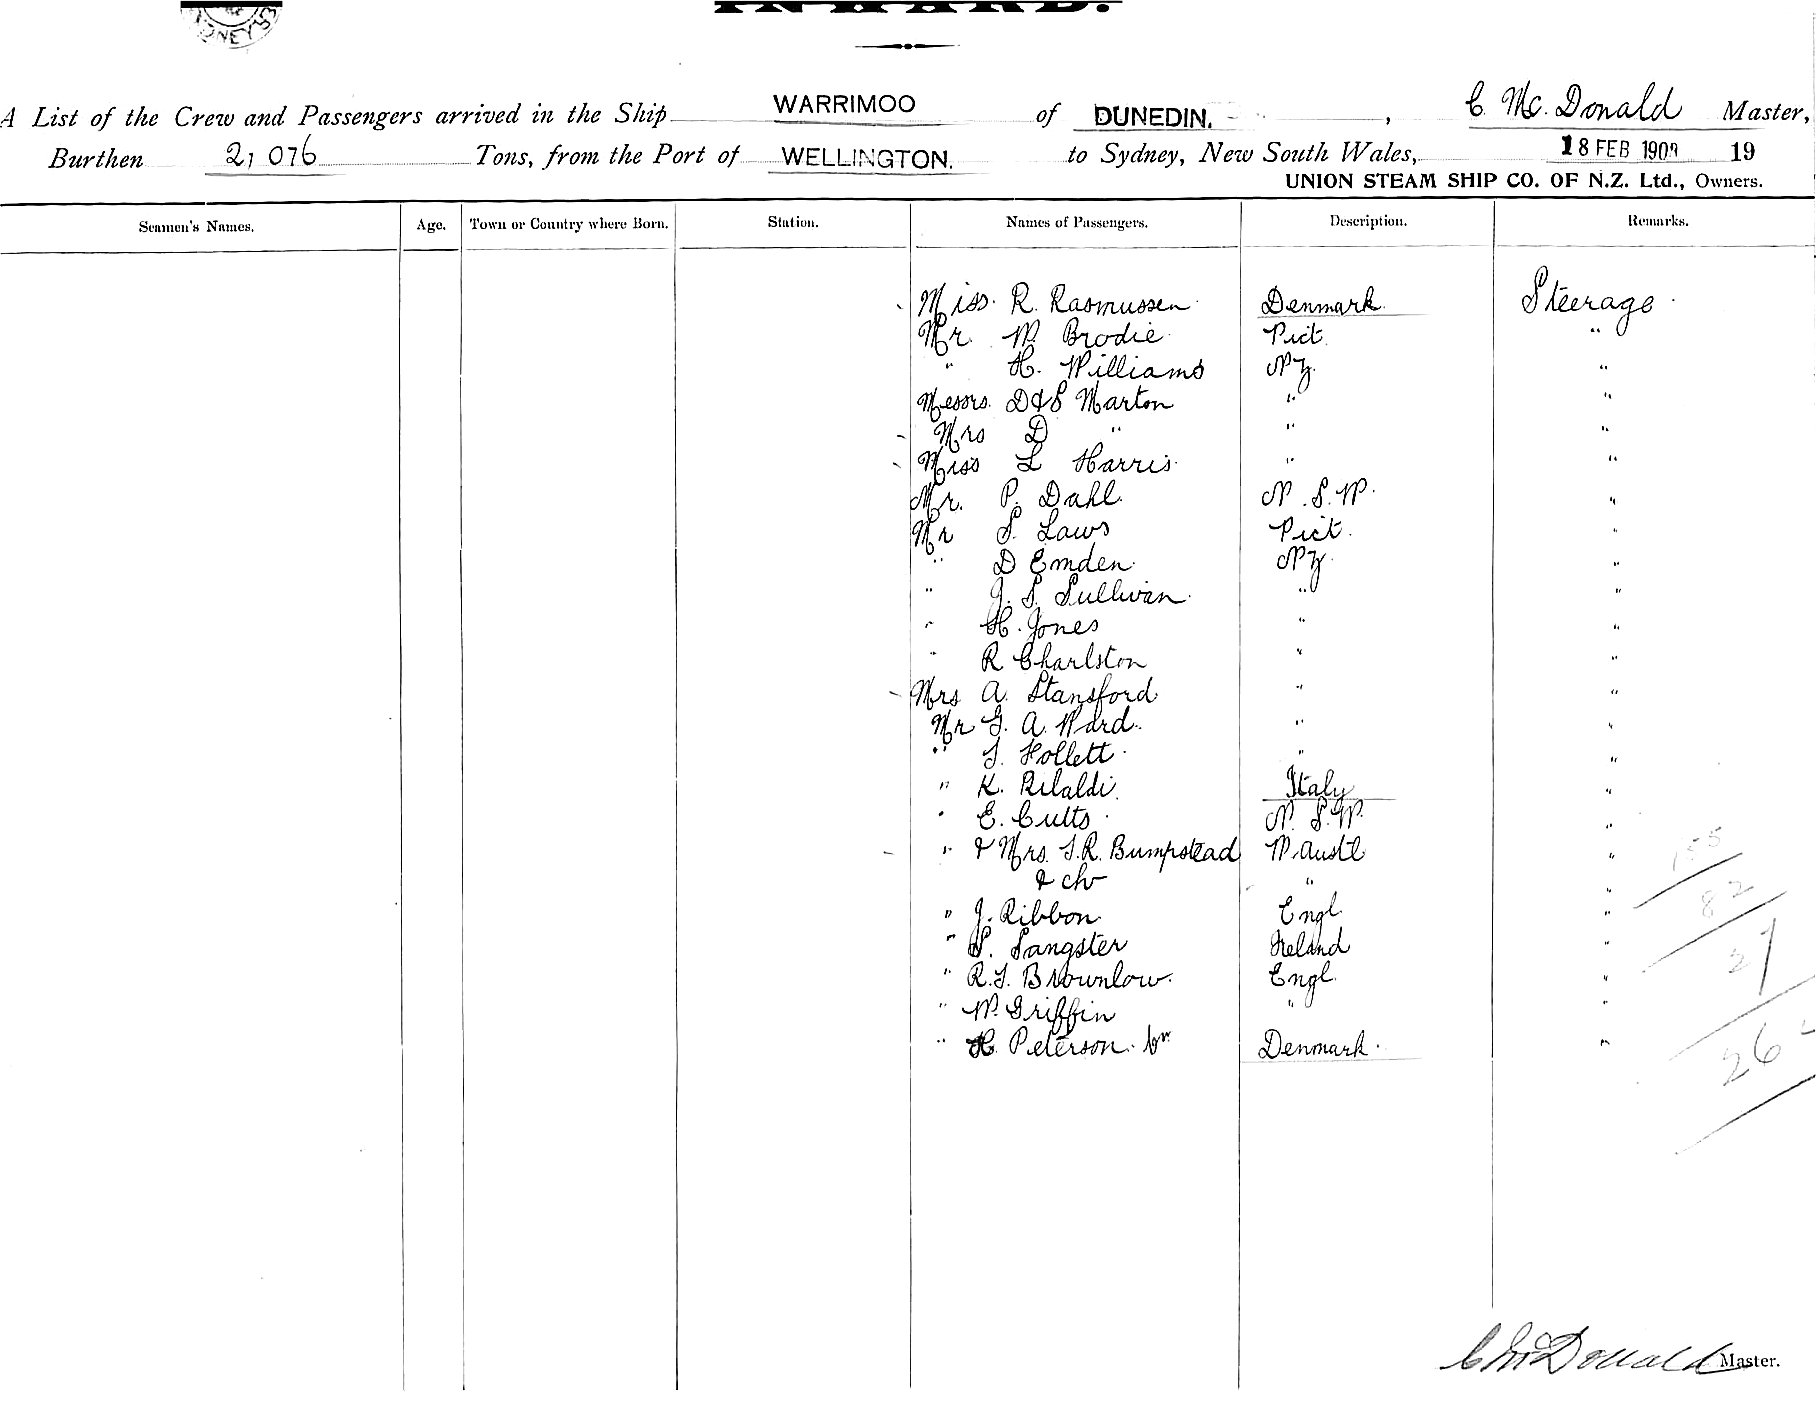 INWARD.
A List of the Crew and Passengers arrived in the Ship WARRIMOO of DUNEDIN. , C. McDonald Master,
Burthen 2,076 Tons, from the Port of WELLINGTON. to Sydney, New South Wales, 18 FEB 1908 19
UNION STEAM SHIP CO. OF N.Z. Ltd., Owners.
Seamen's Names. Age. Town or Country where Born. Station. Names of Passengers. Description. Remarks.
Miss. R. Rasmussen Denmark Steerage
Mr. W. Brodie Vict. "
" H. Williams NZ. "
Messrs. D & S Marton " "
Mrs D " " "
Miss L Harris " "
Mr. P. Dahl N.S.W. "
Mr S. Laws Vict. "
" D Emden NZ. "
" J. S. Sullivan " "
" H. Jones " "
" R Charlston " "
Mrs A. Stansford " "
Mr G. A. Ward. " "
" T. Hollett " "
" K. Rilaldi Italy "
" E. Cutts N.S.W. "
" & Mrs. T.R. Bumpstead W. Austl "
& ch " "
" J. Ribbon Engl "
" S. Sangster Ireland "
" R.T. Brownlow. Engl. "
" W. Griffin " "
" H. Peterson. Denmark. "
155
82
27
26
C McDonald Master.